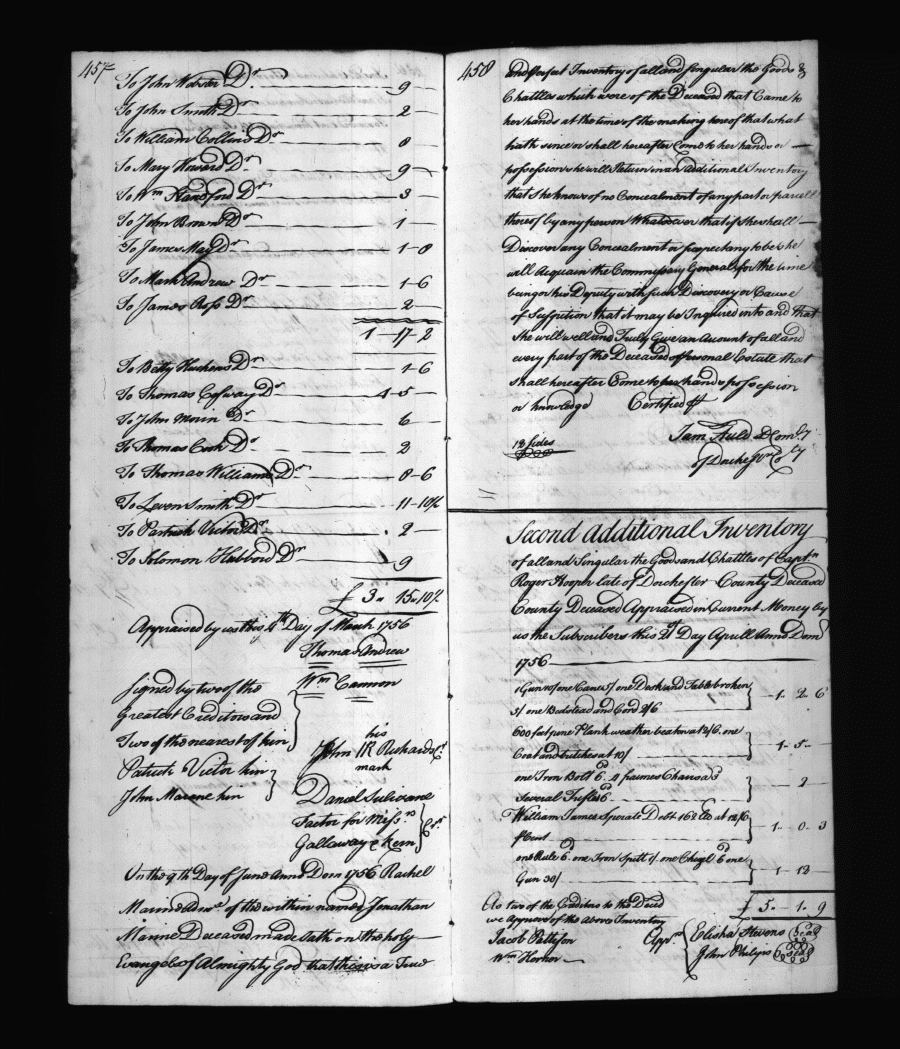 457
To John Webster Dr. 9
To John Smith Dr 2
To William Collins Dr 8
To Mary Howard Dr 9
To Wm Standford Dr 3
To John Brown Dr 1
To James May Dr 1-8
To Mark Andrew Dr 1-6
To James Ross Dr 2
1-17-2
To Betty Dr 1-6
To Thomas Dr 4-5
To John Dr 6
To Thomas Cook Dr 2
To Thomas Williams Dr 8-6
To Leven Smith Dr 11-10½
To Patrick Victor Dr 2
To Solomon Dr 9
£ 3 „ 15 „ 10½
Appraised by us this 4th Day of March 1756
Thomas Andrew
Wm Cannon
Signed by two of the
Greatest Creditors and
Two of the nearest of kin
Patrick Victor kin
John Marene kin
his
John IR Richards Cr
mark
Daniel Sulivane
Factor for Missrs
Gallaway & Kern
Crs
On the 9th Day of June Anno Dom 1756 Rachel
Marine Admx of the within named Jonathan
Marine Deceased made Oath on the holy
Evangels of Almighty God that this is a True
458
and Perfect Inventory of all and singular the Goods &
Chattles which were of the Deceased that Came to
her hands at the time of the making hereof that what
hath since or shall hereafter Come to her hands or
possession she will Return in an additional Inventory
that she knows of no Concealment of any part or parcell
thereof by any person Whatsoever that if she shall
Discover any Concealment or suspect any to be she
will Acquain the Commissary General for the time
being or his Deputy with such Discovery or Cause
of that it may be Inquired into and that
She will well and Truly Give an Account of all and
every part of the Deceased personal Estate that
shall hereafter Come to her hands possession
or knowledge Certified pr
12 sides
Jam Auld D Comsy
of Dorchesr Coty
Second Additional Inventory
of all and Singular the Goods and Chattles of Captn
Roger Hooper late of Dorchester County Deceased
County Deceased Appraised in Current Money by
us the Subscribers this 2d Day Aprill Anno Dom
1756
1 Gun 10/ one Cane 5/ one Desk and Table broken
5/ one Bedstead and Cord 2/6 1 „ 2 „ 6
600 feet pine Plank weather beaten at 2/6 one
Coat and britches at 10/ 1 „ 5
one Iron Bolt 6d 4 fraimes Chairs a 3
Several Trifles 6 2
William James Sperate Debt 162 lb at 12/6
p Cent 1 „ 0 „ 3
one Rule 6d one Iron Spitt 1/ one Chezl 6d one
Gun 30/ 1 „ 12
£ 5 „ 1 „ 9
As two of the Creditors to the Deced
we Approve of the above Inventory
Jacob Pattison
Wm Hornor
Aprs
Elisha Stevens (Seal)
John Philips (Seal)